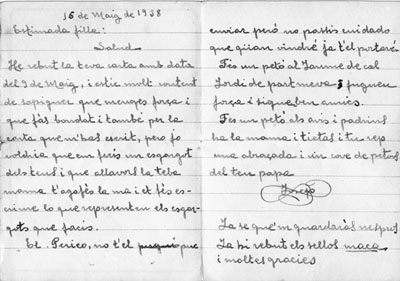 15 de Maig de 1938
Estimada filla:
Salud
He rebut la teva carta amb data
del 9 de Maig, i estic molt content
de sapiguer que menges força i
que fas bondat i també per la
carta que m'has escrit, pero jo
voldria que em fesis un esgargot
dels teus i que allavors la teba
mama t'agafés la ma i et fés es-
criure lo que representen els esgar-
gots que facis.
El Perico, no t'el puguic que
enviar però no passis cuidado
que quan vindré ja t'el portaré
Fes un petó al Jaume de cal
Jordi de part meva i jugueu
força i sigueu ben amics.
Fes un petó als avis i padrins
ha la mama i tietas i tu rep
una abraçada i un cove de petons
del teu papa
Josep
Ja se que m guardaràs
Ja hi rebut els sellos maca
i moltes gracies